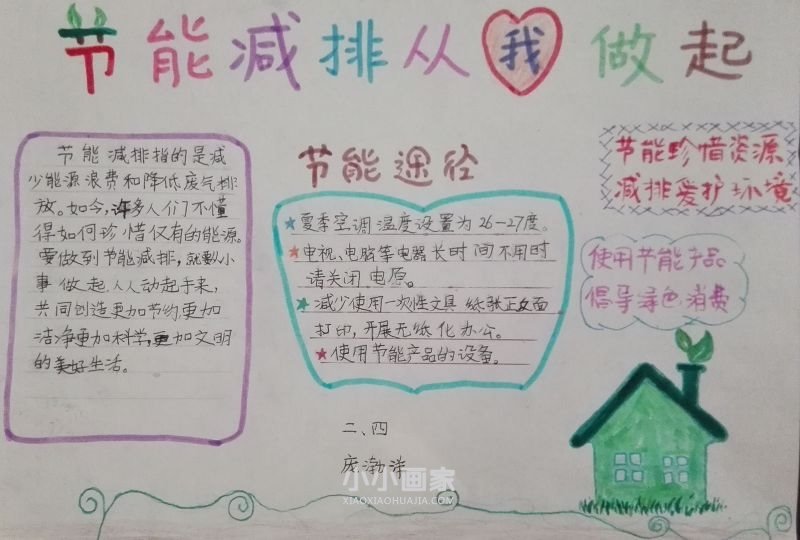 节能减排从我做起
节能减排指的是减
少能源浪费和降低废气排
放。如今,许多人们不懂
得如何珍惜仅有的能源。
要做到节能减排,就要从小
事做起,人人动起手来,
共同创造更加节约,更加
洁净更加科学,更加文明
的美好生活。
节能途径
★夏季空调温度设置为26-27度。
★电视、电脑等电器长时间不用时
请关闭电源。
★减少使用一次性文具纸张正反面
打印,开展无纸化办公。
★使用节能产品的设备。
节能珍惜资源
减排爱护环境
使用节能产品
倡导绿色消费
二、四
庞渤
小小画家
XIAOXIAOHUAJIA.COM